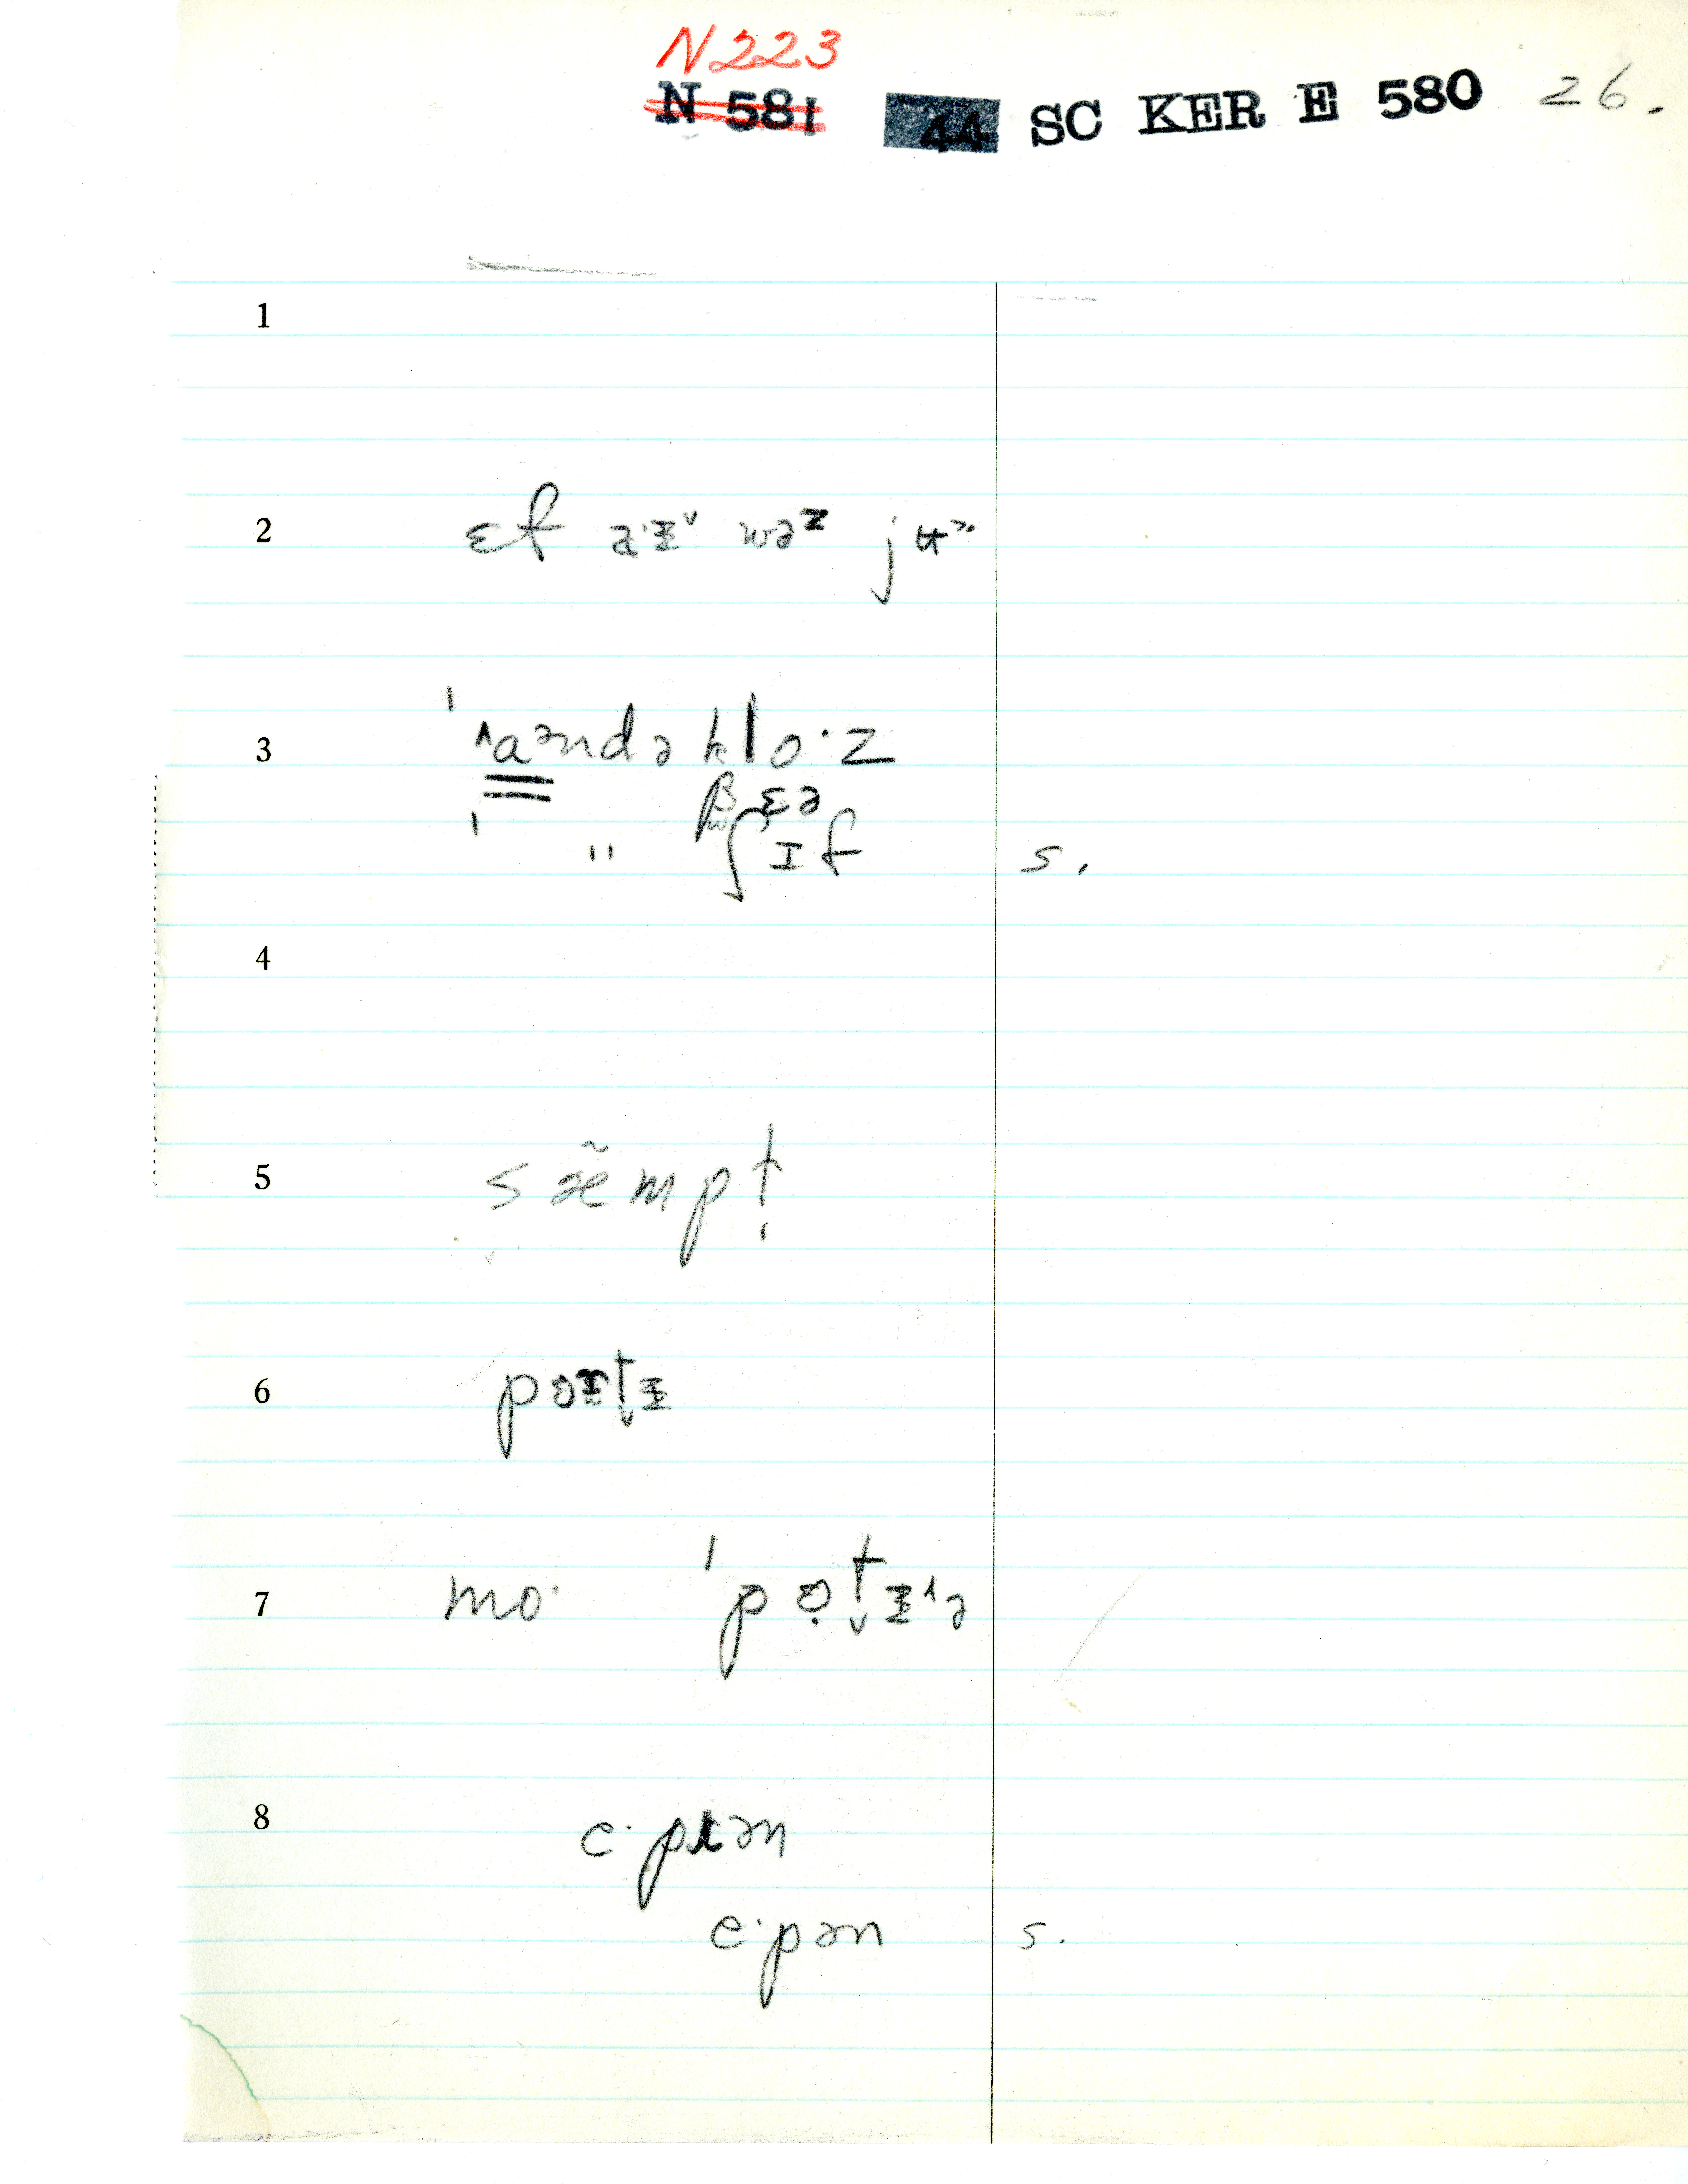 N223
N 581 44 SC KER E 580 26.
1
2 ɛf əɪᵛ wəᶻ jʉ˃
3 ˈʌaᵊndə klo·z
ɛə
ˈ " ʃɪf s.
4
5 sæ̃mpt
6 pɔɪtɪ
7 mo· ˈpɔtɪʌə
8 e·pɪən
e·pən s.